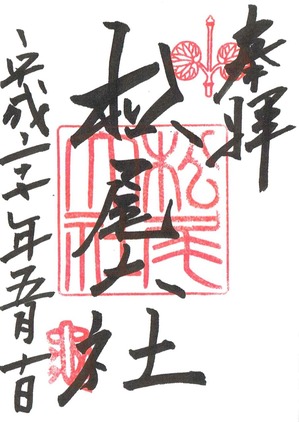 奉拝
松尾大社
平成二十年五月十日
松尾大社